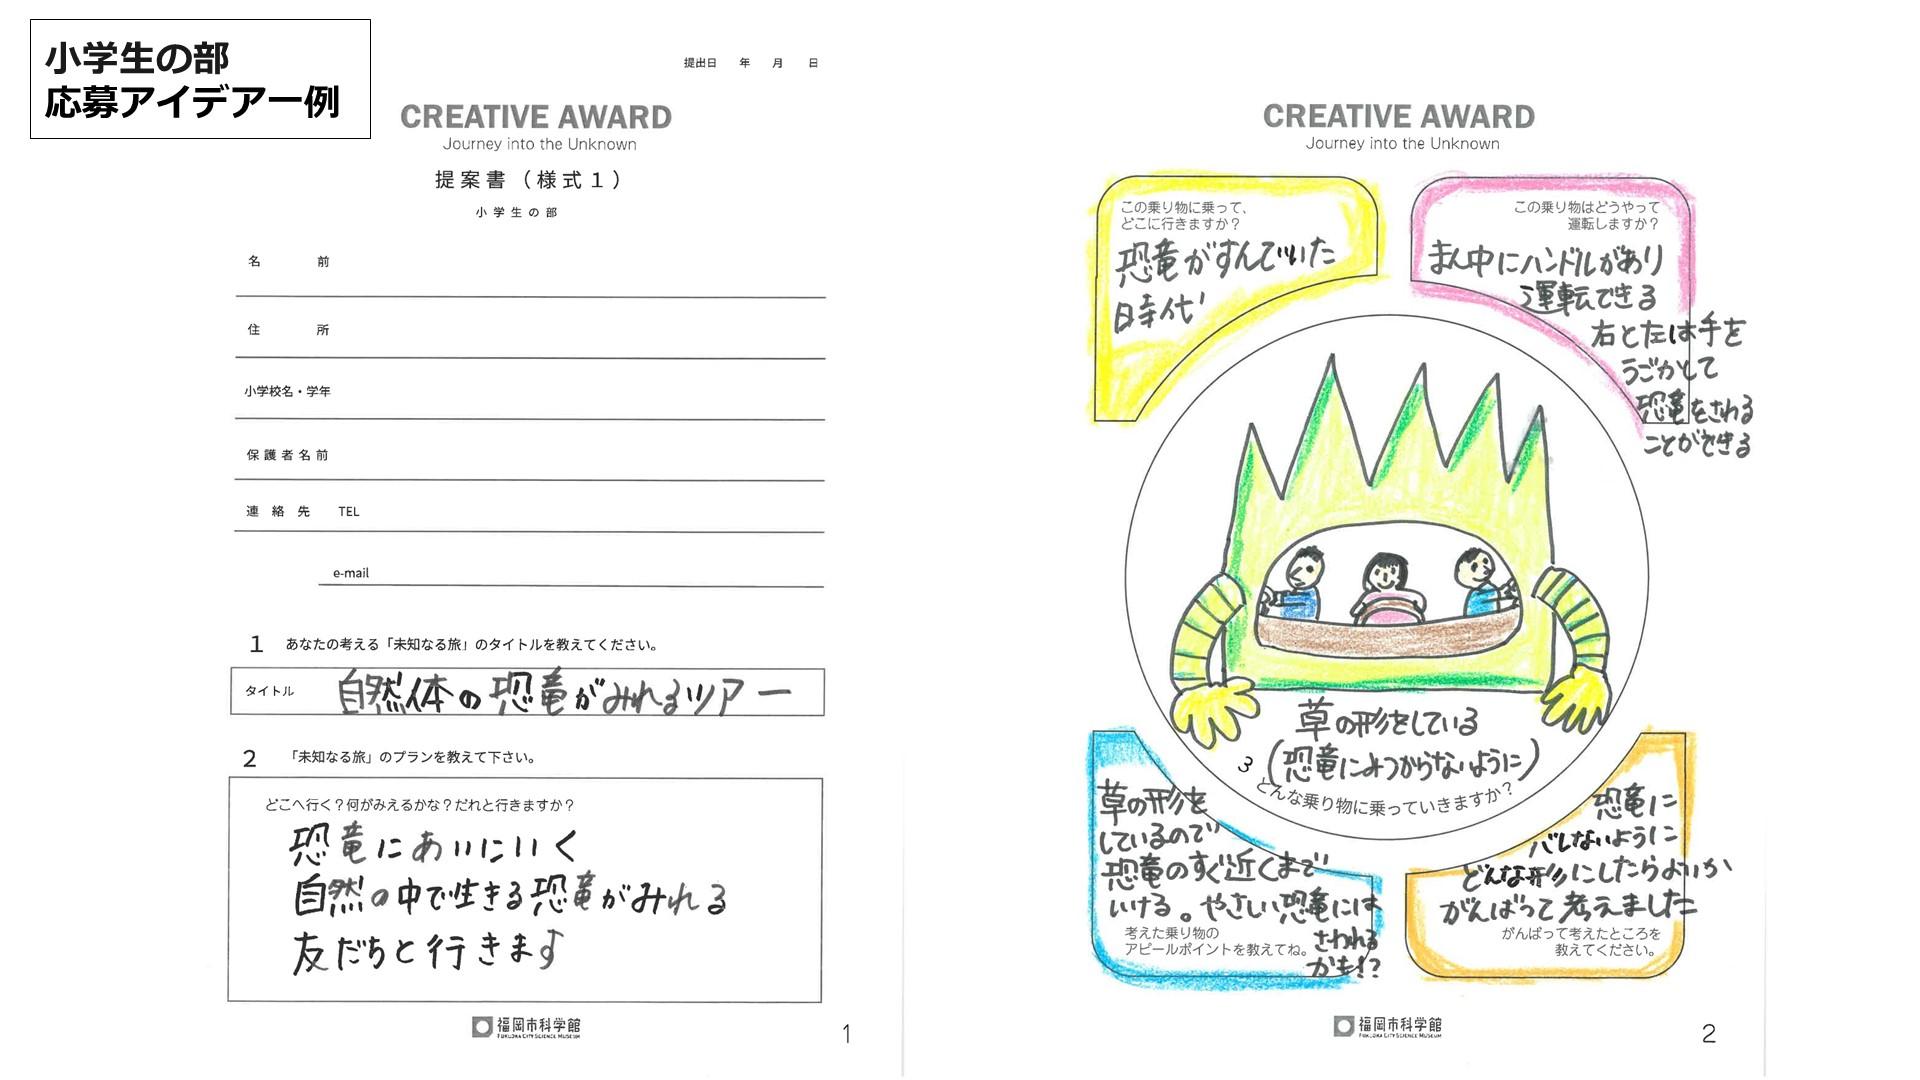 小学生の部
応募アイデア一例
提出日 年 月 日
CREATIVE AWARD
Journey into the Unknown
提案書（様式１）
小学生の部
名 前
住 所
小学校名・学年
保護者名前
連絡先 TEL
e-mail
1 あなたの考える「未知なる旅」のタイトルを教えてください。
タイトル 自然体の恐竜がみれるツアー
2 「未知なる旅」のプランを教えて下さい。
どこへ行く？何がみえるかな？だれと行きますか？
恐竜にあいにいく
自然の中で生きる恐竜がみれる
友だちと行きます
福岡市科学館
FUKUOKA CITY SCIENCE MUSEUM
1
CREATIVE AWARD
Journey into the Unknown
この乗り物に乗って、
どこに行きますか？
恐竜がすんでいた
時代
この乗り物はどうやって
運転しますか？
まん中にハンドルがあり
運転できる
右と左は手を
うごかして
恐竜をさわる
ことができる
草の形をしている
(恐竜にみつからないように)
3 どんな乗り物に乗っていきますか？
草の形を
しているので
恐竜のすぐ近くまで
いける。やさしい恐竜には
さわれる
かも!?
考えた乗り物の
アピールポイントを教えてね。
恐竜に
バレないように
どんな形にしたらよいか
がんばって考えました
がんばって考えたところを
教えてください。
福岡市科学館
FUKUOKA CITY SCIENCE MUSEUM
2